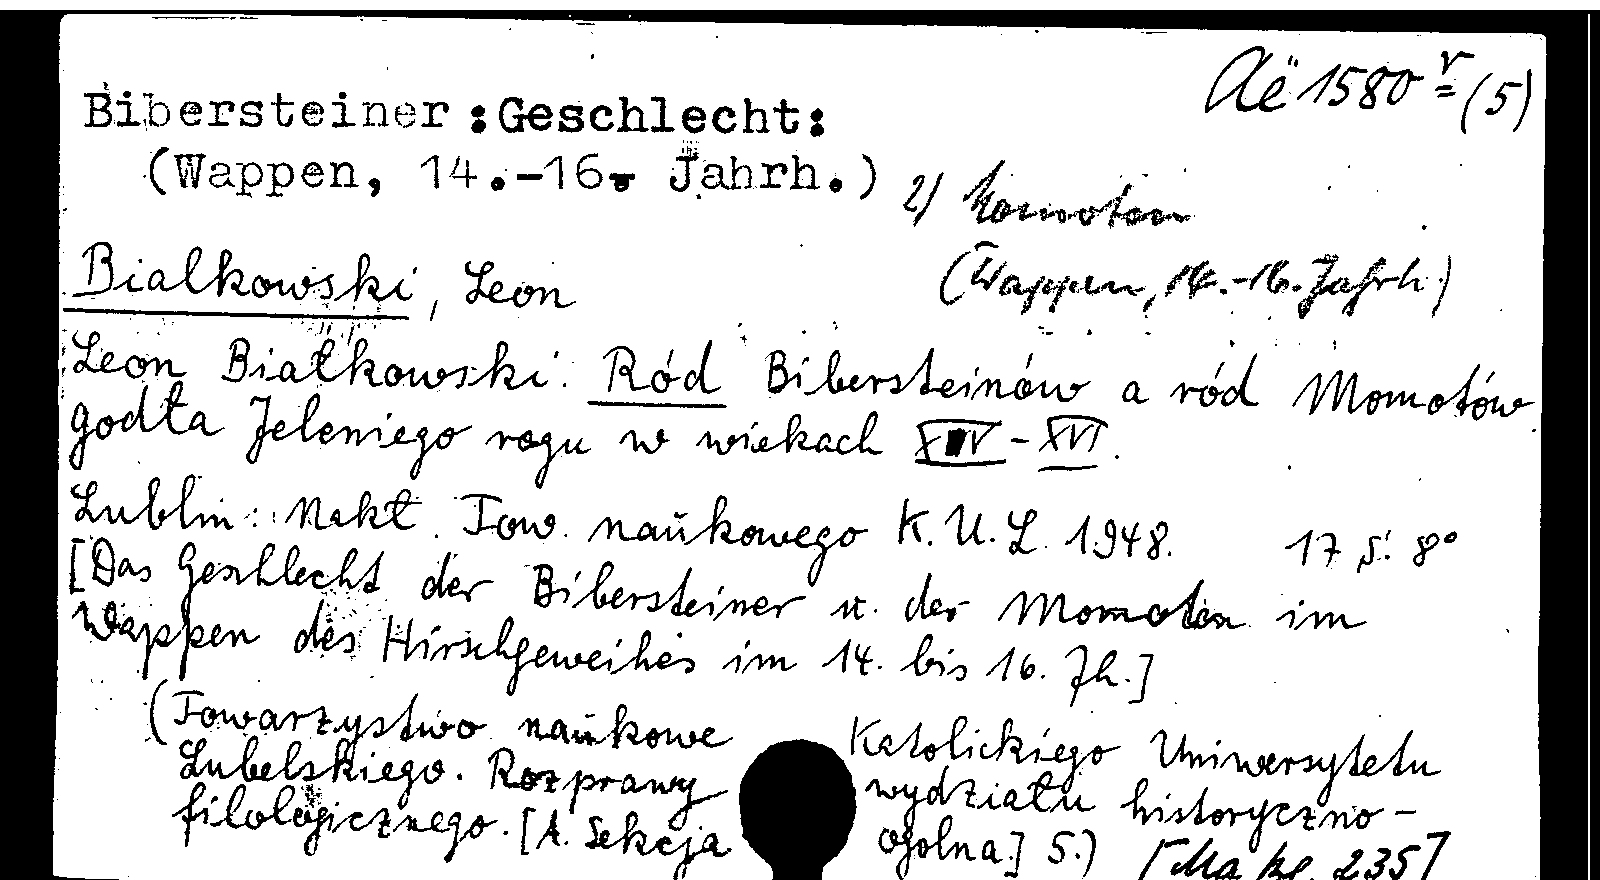 Aë 1580 r = (5)
Bibersteiner :Geschlecht:
(Wappen, 14.-16. Jahrh.)
2) Momoten
(Wappen, 14.-16. Jahrh.)
Bialkowski, Leon
Leon Białkowski. Ród Bibersteinów a ród Momotów
godła Jeleniego rogu w wiekach XIV-XVI.
Lublin: Nakł. Tow. naukowego K. U. L. 1948. 17 S. 8°
[Das Geschlecht der Bibersteiner u. der Momoten im
Wappen des Hirschgeweihes im 14. bis 16. Jh.]
(Towarzystwo naukowe Katolickiego Uniwersytetu
Lubelskiego. Rozprawy wydziału historyczno-
filologicznego. [A. Sekcja ogolna.] 5.) [Ma Bl. 235]